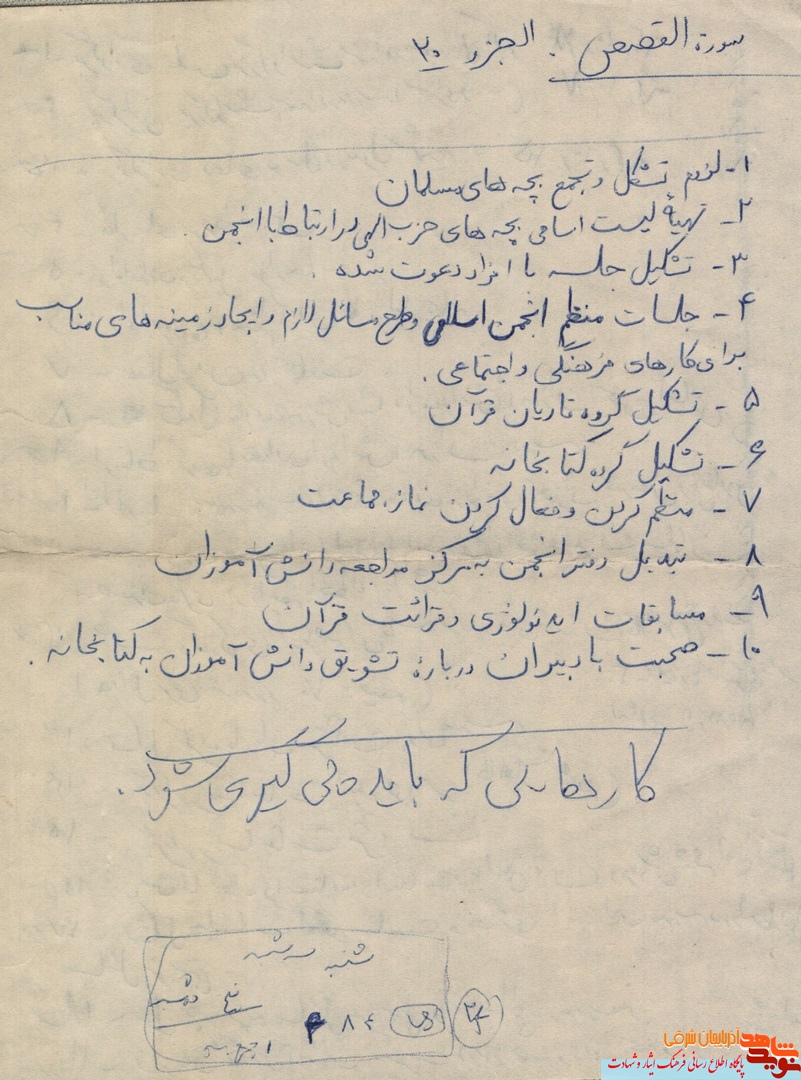 سورة القصص . الجزء ۲۰
۱- لزوم تشکل و تجمع بچه های مسلمان
۲- تهیهٔ لیست اسامی بچه های حزب الهی در ارتباط با انجمن .
۳- تشکیل جلسه با افراد دعوت شده .
۴- جلسات منظم انجمن اسلامی و طرح مسائل لازم و ایجاد زمینه های مناسب
برای کارهای فرهنگی و اجتماعی .
۵- تشکیل گروه قاریان قرآن
۶- تشکیل گروه کتابخانه
۷- منظم کردن و فعال کردن نماز جماعت
۸- تبدیل دفتر انجمن به مرکز مراجعه دانش آموزان
۹- مسابقات ایدئولوژی و قرائت قرآن
۱۰- صحبت با دبیران دربارهٔ تشویق دانش آموزان به کتابخانه .
کارهایی که باید پی گیری شود .
شنبه
نوید شاهد آذربایجان شرقی
پایگاه اطلاع رسانی فرهنگ ایثار و شهادت